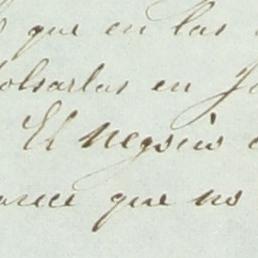 que en las
bolsarlas en
El negocio
arece que no